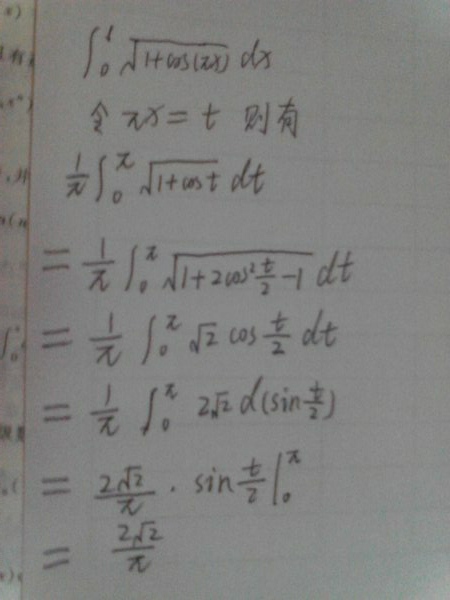 ∫₀¹ √(1+cos(πx)) dx
令 πx = t 则有
1/π ∫₀^π √(1+cos t) dt
= 1/π ∫₀^π √(1+2cos² t/2 −1) dt
= 1/π ∫₀^π √2 cos t/2 dt
= 1/π ∫₀^π 2√2 d(sin t/2)
= 2√2/π · sin t/2 |₀^π
= 2√2/π